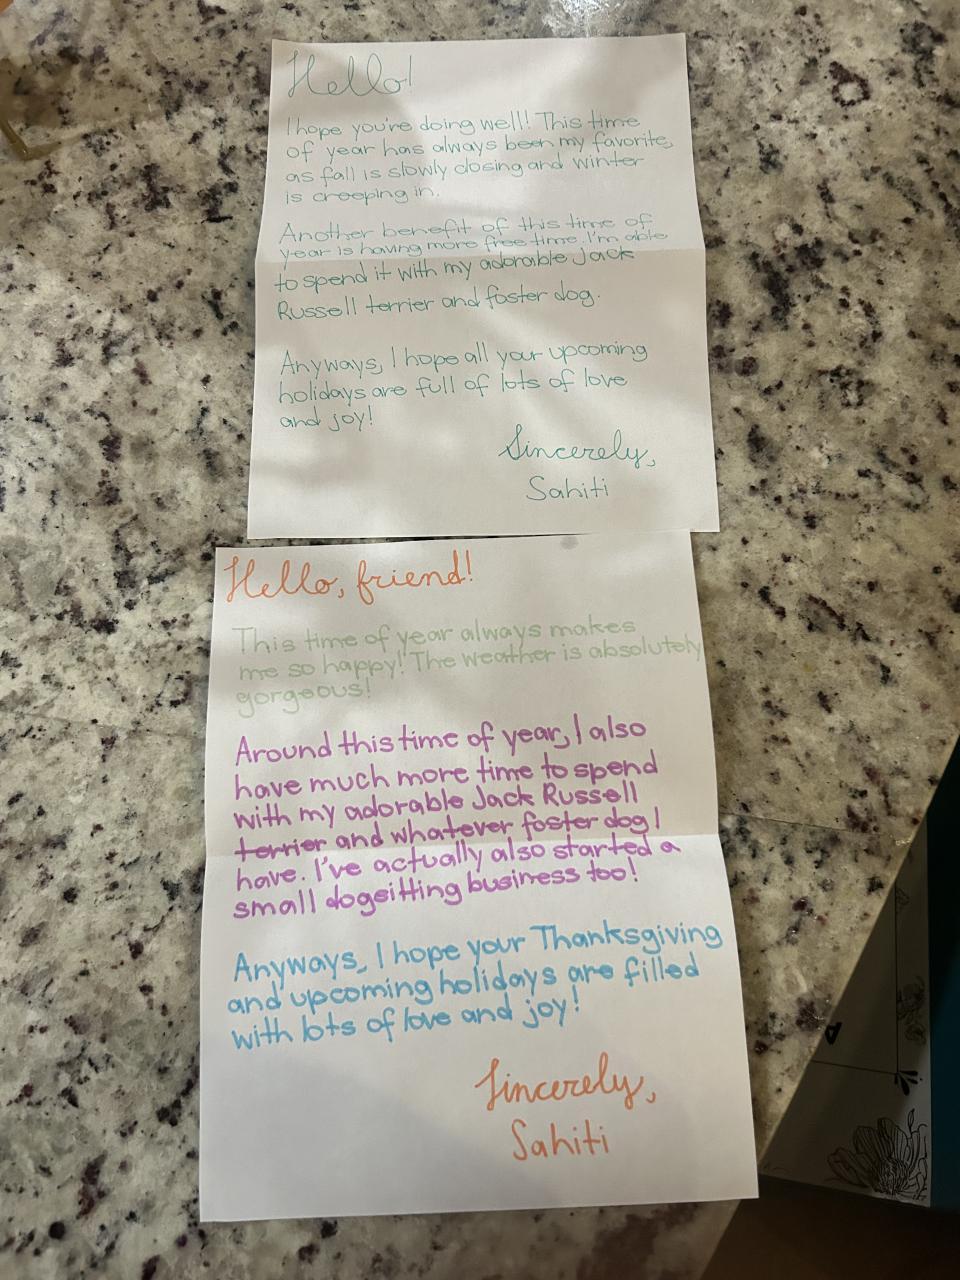 Hello!
I hope you're doing well! This time
of year has always been my favorite,
as fall is slowly closing and winter
is creeping in.
Another benefit of this time of
year is having more free time. I'm able
to spend it with my adorable Jack
Russell terrier and foster dog.
Anyways, I hope all your upcoming
holidays are full of lots of love
and joy!
Sincerely,
Sahiti
Hello, friend!
This time of year always makes
me so happy! The weather is absolutely
gorgeous!
Around this time of year, I also
have much more time to spend
with my adorable Jack Russell
terrier and whatever foster dog I
have. I've actually also started a
small dogsitting business too!
Anyways, I hope your Thanksgiving
and upcoming holidays are filled
with lots of love and joy!
Sincerely,
Sahiti